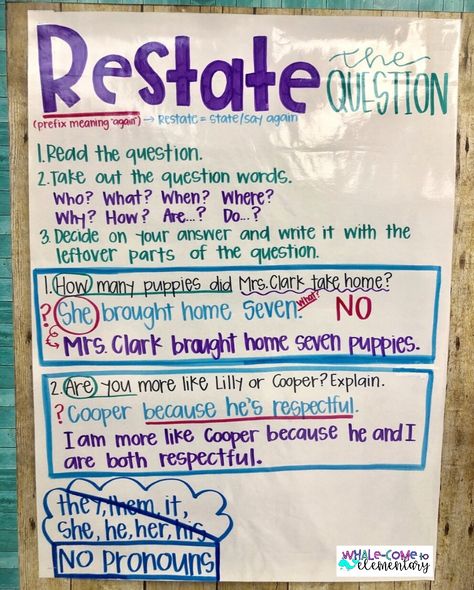 Restate the
QUESTION
(prefix meaning "again") → Restate = state/say again
1. Read the question.
2. Take out the question words.
Who? What? When? Where?
Why? How? Are...? Do...?
3. Decide on your answer and write it with the
leftover parts of the question.
1. How many puppies did Mrs. Clark take home?
? She brought home seven. what? NO
Mrs. Clark brought home seven puppies.
2. Are you more like Lilly or Cooper? Explain.
? Cooper because he's respectful.
I am more like Cooper because he and I
are both respectful.
they, them, it,
she, he, her, his
NO PRONOUNS
WHALE-COME to
elementary